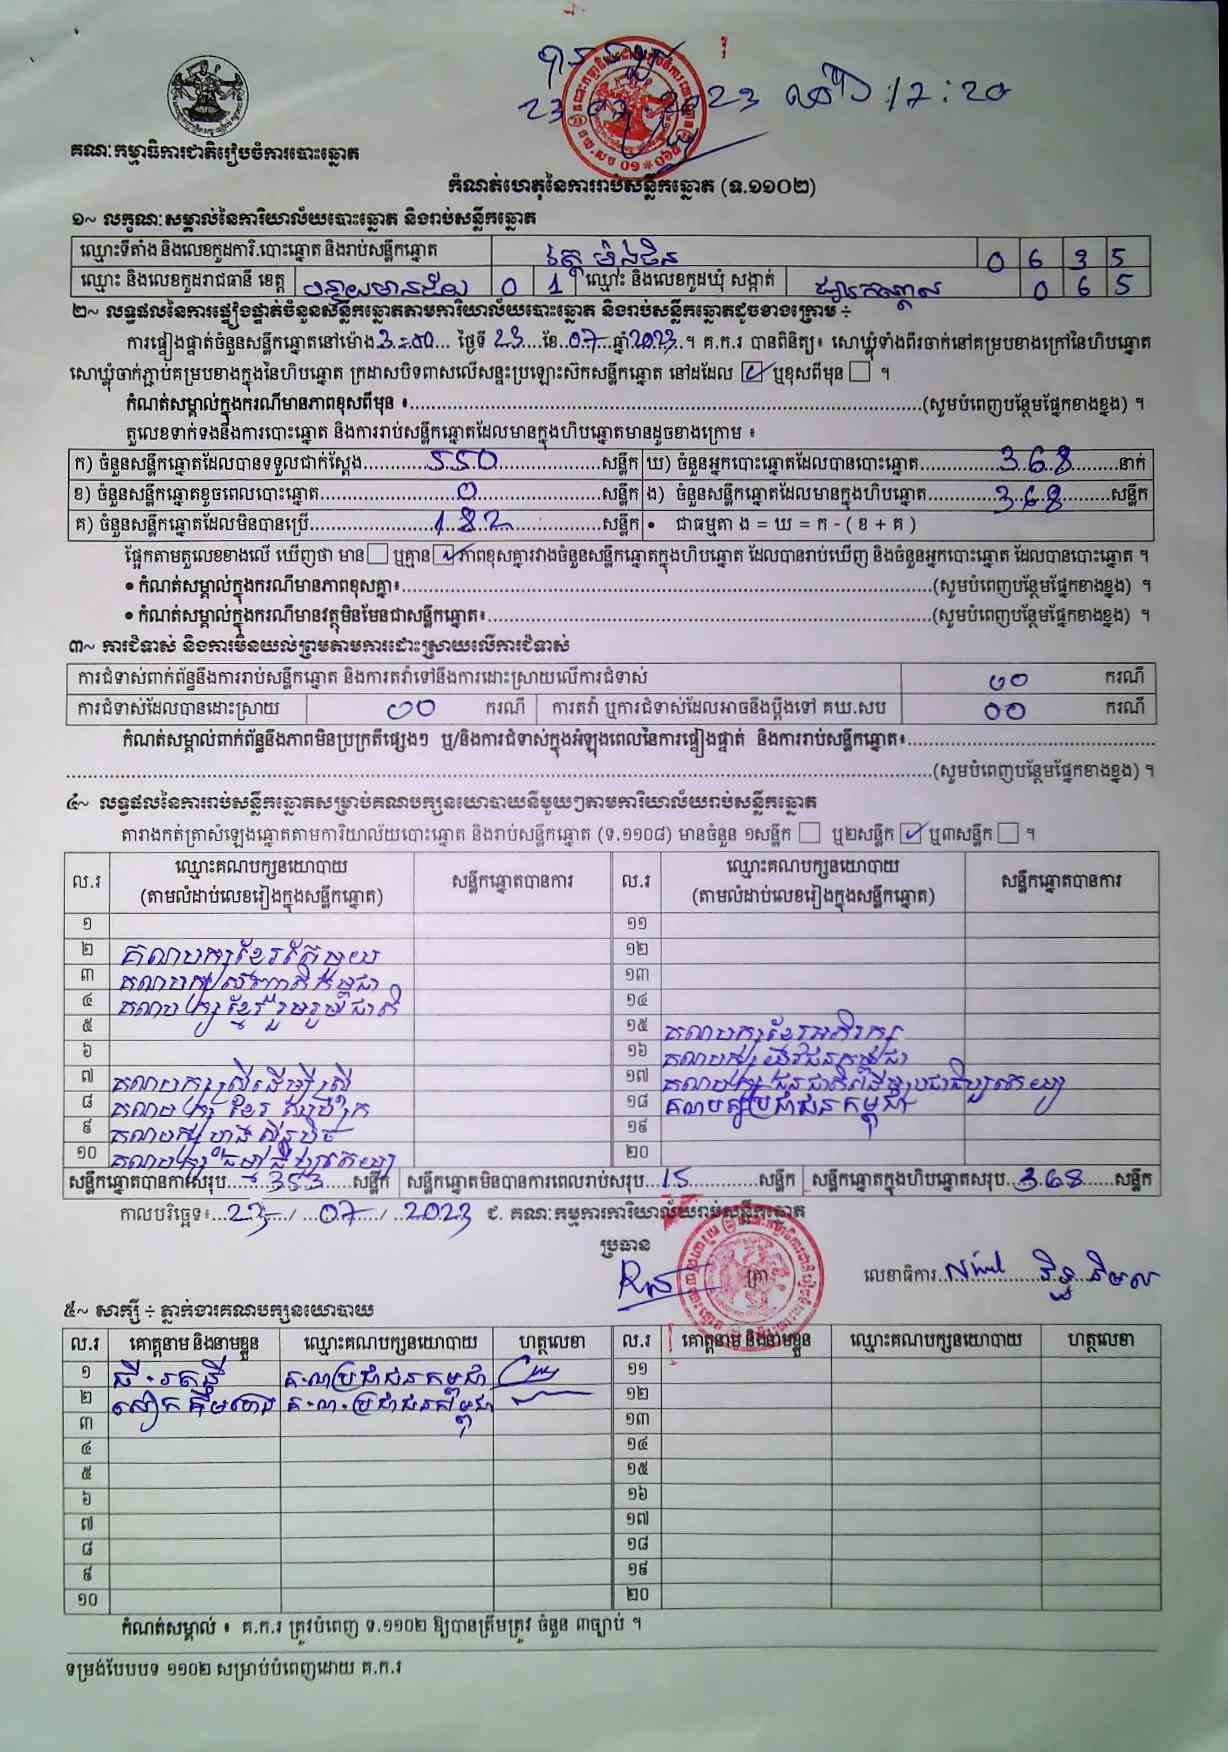 បានឃើញ
23.07.2023 ម៉ោង 17:20
គណៈកម្មាធិការជាតិរៀបចំការបោះឆ្នោត
កំណត់ហេតុនៃការរាប់សន្លឹកឆ្នោត (ទ.១១០២)
១~ លក្ខណៈសម្គាល់នៃការិយាល័យបោះឆ្នោត និងរាប់សន្លឹកឆ្នោត
ឈ្មោះទីតាំង និងលេខកូដការិ.បោះឆ្នោត និងរាប់សន្លឹកឆ្នោត 0 6 3 5
ឈ្មោះ និងលេខកូដរាជធានី ខេត្ត បន្ទាយមានជ័យ 0 1 ឈ្មោះ និងលេខកូដឃុំ សង្កាត់ ផ្សារកណ្តាល 0 6 5
២~ លទ្ធផលនៃការផ្ទៀងផ្ទាត់ចំនួនសន្លឹកឆ្នោតតាមការិយាល័យបោះឆ្នោត និងរាប់សន្លឹកឆ្នោតដូចខាងក្រោម ÷
ការផ្ទៀងផ្ទាត់ចំនួនសន្លឹកឆ្នោតនៅម៉ោង 3:50 ថ្ងៃទី 23 ខែ 07 ឆ្នាំ 2023 ។ គ.ក.រ បានពិនិត្យ៖ សោឃ្លុំទាំងពីរចាក់នៅគម្របខាងក្រៅនៃហិបឆ្នោត
សោឃ្លុំចាក់ភ្ជាប់គម្របខាងក្នុងនៃហិបឆ្នោត ក្រដាសបិទពាសលើសន្ទះប្រឡោះស៊កសន្លឹកឆ្នោត នៅដដែល ☑ ឬខុសពីមុន ☐ ។
កំណត់សម្គាល់ក្នុងករណីមានភាពខុសពីមុន ៖..........(សូមបំពេញបន្ថែមផ្នែកខាងខ្នង) ។
តួលេខទាក់ទងនឹងការបោះឆ្នោត និងការរាប់សន្លឹកឆ្នោតដែលមានក្នុងហិបឆ្នោតមានដូចខាងក្រោម ៖
ក) ចំនួនសន្លឹកឆ្នោតដែលបានទទួលជាក់ស្តែង 550 សន្លឹក ឃ) ចំនួនអ្នកបោះឆ្នោតដែលបានបោះឆ្នោត 368 នាក់
ខ) ចំនួនសន្លឹកឆ្នោតខូចពេលបោះឆ្នោត 0 សន្លឹក ង) ចំនួនសន្លឹកឆ្នោតដែលមានក្នុងហិបឆ្នោត 368 សន្លឹក
គ) ចំនួនសន្លឹកឆ្នោតដែលមិនបានប្រើ 182 សន្លឹក • ជាធម្មតា ង = ឃ = ក - ( ខ + គ )
ផ្អែកតាមតួលេខខាងលើ ឃើញថា មាន ☐ ឬគ្មាន ☑ ភាពខុសគ្នារវាងចំនួនសន្លឹកឆ្នោតក្នុងហិបឆ្នោត ដែលបានរាប់ឃើញ និងចំនួនអ្នកបោះឆ្នោត ដែលបានបោះឆ្នោត ។
• កំណត់សម្គាល់ក្នុងករណីមានភាពខុសគ្នា៖..........(សូមបំពេញបន្ថែមផ្នែកខាងខ្នង) ។
• កំណត់សម្គាល់ក្នុងករណីមានវត្ថុមិនមែនជាសន្លឹកឆ្នោត៖..........(សូមបំពេញបន្ថែមផ្នែកខាងខ្នង) ។
៣~ ការជំទាស់ និងការមិនយល់ព្រមតាមការដោះស្រាយលើការជំទាស់
ការជំទាស់ពាក់ព័ន្ធនឹងការរាប់សន្លឹកឆ្នោត និងការតវ៉ាទៅនឹងការដោះស្រាយលើការជំទាស់ 00 ករណី
ការជំទាស់ដែលបានដោះស្រាយ 00 ករណី ការតវ៉ា ឬការជំទាស់ដែលអាចនឹងប្តឹងទៅ គឃ.សប 00 ករណី
កំណត់សម្គាល់ពាក់ព័ន្ធនឹងភាពមិនប្រក្រតីផ្សេងៗ ឬ/និងការជំទាស់ក្នុងអំឡុងពេលនៃការផ្ទៀងផ្ទាត់ និងការរាប់សន្លឹកឆ្នោត៖..........
..........(សូមបំពេញបន្ថែមផ្នែកខាងខ្នង) ។
៤~ លទ្ធផលនៃការរាប់សន្លឹកឆ្នោតសម្រាប់គណបក្សនយោបាយនីមួយៗតាមការិយាល័យរាប់សន្លឹកឆ្នោត
តារាងកត់ត្រាសំឡេងឆ្នោតតាមការិយាល័យបោះឆ្នោត និងរាប់សន្លឹកឆ្នោត (ទ.១១០៨) មានចំនួន ១សន្លឹក ☐ ឬ២សន្លឹក ☑ ឬ៣សន្លឹក ☐ ។
ល.រ ឈ្មោះគណបក្សនយោបាយ (តាមលំដាប់លេខរៀងក្នុងសន្លឹកឆ្នោត) សន្លឹកឆ្នោតបានការ ល.រ ឈ្មោះគណបក្សនយោបាយ (តាមលំដាប់លេខរៀងក្នុងសន្លឹកឆ្នោត) សន្លឹកឆ្នោតបានការ
១ ១១
២ គណបក្សខ្មែរតែមួយ ១២
៣ គណបក្សសញ្ជាតិកម្ពុជា ១៣
៤ គណបក្សខ្មែររួបរួមជាតិ ១៤
៥ ១៥ គណបក្សខ្មែរអភិរក្ស
៦ ១៦ គណបក្សយុវជនកម្ពុជា
៧ គណបក្សស្រីដើម្បីស្រី ១៧ គណបក្សជនជាតិដើមប្រជាធិបតេយ្យ
៨ គណបក្សខ្មែរ ១៨ គណបក្សប្រជាជនកម្ពុជា
៩ គណបក្សហ្វ៊ុនស៊ិនប៉ិច ១៩
១០ គណបក្សធម្មាធិបតេយ្យ ២០
សន្លឹកឆ្នោតបានការសរុប 353 សន្លឹក សន្លឹកឆ្នោតមិនបានការពេលរាប់សរុប 15 សន្លឹក សន្លឹកឆ្នោតក្នុងហិបឆ្នោតសរុប 368 សន្លឹក
កាលបរិច្ឆេទ៖ 23 / 07 / 2023 ជ. គណៈកម្មការការិយាល័យរាប់សន្លឹកឆ្នោត
ប្រធាន
ត្រា លេខាធិការ
៥~ សាក្សី ÷ ភ្នាក់ងារគណបក្សនយោបាយ
ល.រ គោត្តនាម និងនាមខ្លួន ឈ្មោះគណបក្សនយោបាយ ហត្ថលេខា ល.រ គោត្តនាម និងនាមខ្លួន ឈ្មោះគណបក្សនយោបាយ ហត្ថលេខា
១ គ.ណ.ប្រជាជនកម្ពុជា ១១
២ គ.ណ.ប្រជាជនកម្ពុជា ១២
៣ ១៣
៤ ១៤
៥ ១៥
៦ ១៦
៧ ១៧
៨ ១៨
៩ ១៩
១០ ២០
កំណត់សម្គាល់ ៖ គ.ក.រ ត្រូវបំពេញ ទ.១១០២ ឱ្យបានត្រឹមត្រូវ ចំនួន ៣ច្បាប់ ។
ទម្រង់បែបបទ ១១០២ សម្រាប់បំពេញដោយ គ.ក.រ